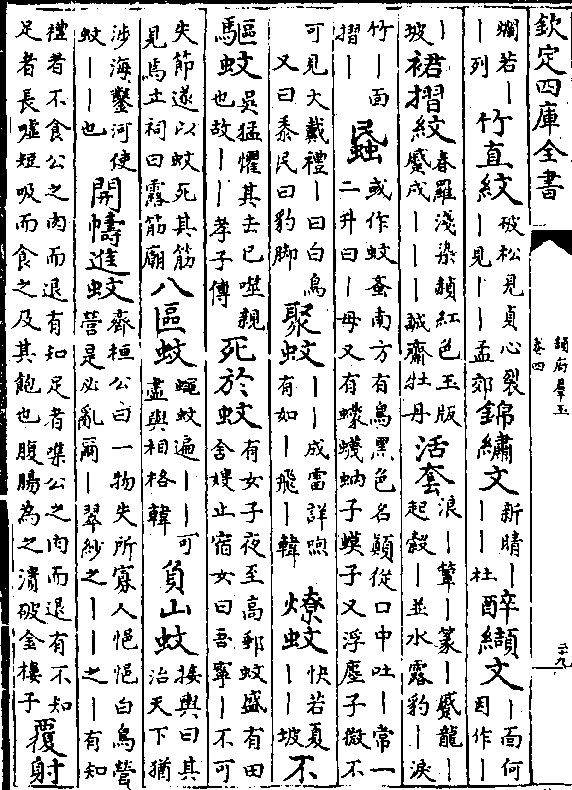 欽定四庫全書
韻府羣玉
卷四
二十九
爛若｜
｜列
竹直紋
破松見貞心裂
｜見｜｜孟郊
錦繡文
新晴｜
｜｜杜
醉纈文
｜面何
因作｜
｜
坡
裙摺紋
春羅淺染纈紅色玉版
蹙成｜｜｜誠齋牡丹
活套
浪｜簟｜篆｜蹙龍｜
起縠｜並水露豹｜淚
竹｜面
摺｜
蟁
或作蚊䖟南方有鳥黑色名顛從口中吐｜常一
二升曰｜母又有蠓蠛蚋子蟆子又浮塵子微不
可見大戴禮｜曰白鳥
又曰黍民曰豹脚
聚蚊
｜｜成雷詳煦
有如｜飛｜韓
燎蚊
快若夏
｜｜坡
不
驅蚊
吳猛懼其去已噬親
也故｜｜孝子傳
死於蚊
有女子夜至高郵蚊盛有田
舍嫂止宿女曰吾寧｜不可
失節遂以蚊死其筋
見焉土祠曰露筋廟
八區蚊
蠅蚊遍｜｜可
盡與相格韓
負山蚊
接輿曰其
治天下猶
涉海鑿河使
蚊｜｜也
開幬進蚊
齊桓公曰一物失所寡人悒悒白鳥營
營是必亂爾｜翠紗之｜｜之｜有知
禮者不食公之肉而退有知足者噆公之肉而退有不知
足者長噓短吸而食之及其飽也腹腸為之潰破金樓子
覆射